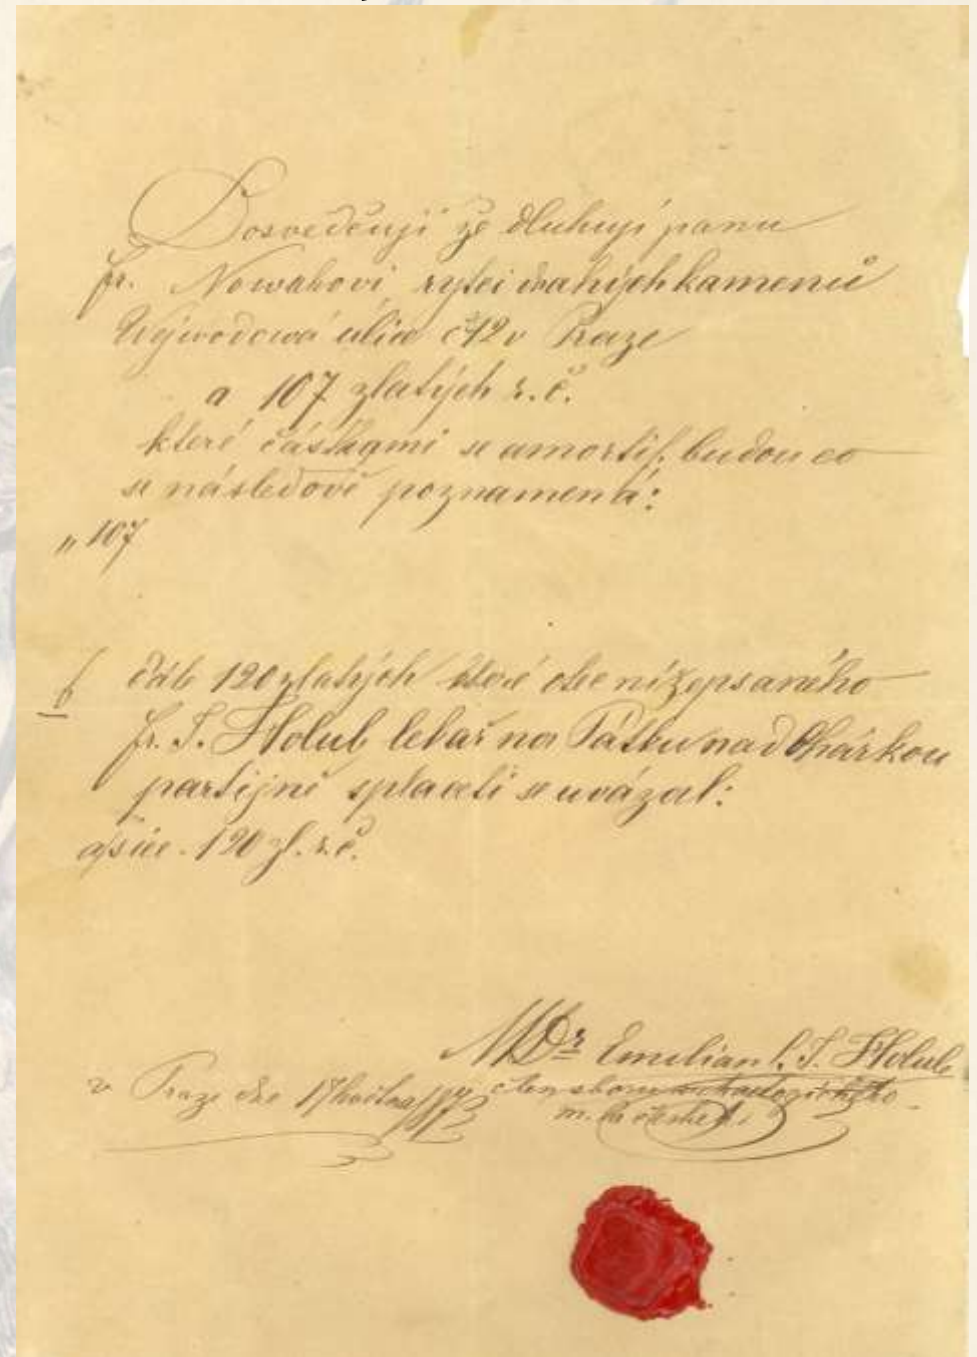 Dosvědčuji že dluhuji panu
fr. Nowakovi rytci drahých kamenů
Wejwodowá ulice č 12 v Praze
a 107 zlatých r. č.
které částkami se amortif. budou co
se následově poznamená:
„ 107
b dále 120 zlatých které otec nížepsaného
fr. J. Holub lekař na Pátku nad Ohárkou
partijně splaceti se uvázal:
a sice. 120 zl. r. č.
MDr Emilian l. J. Holub
v Praze dne 17 května
člen sboru archaeologického